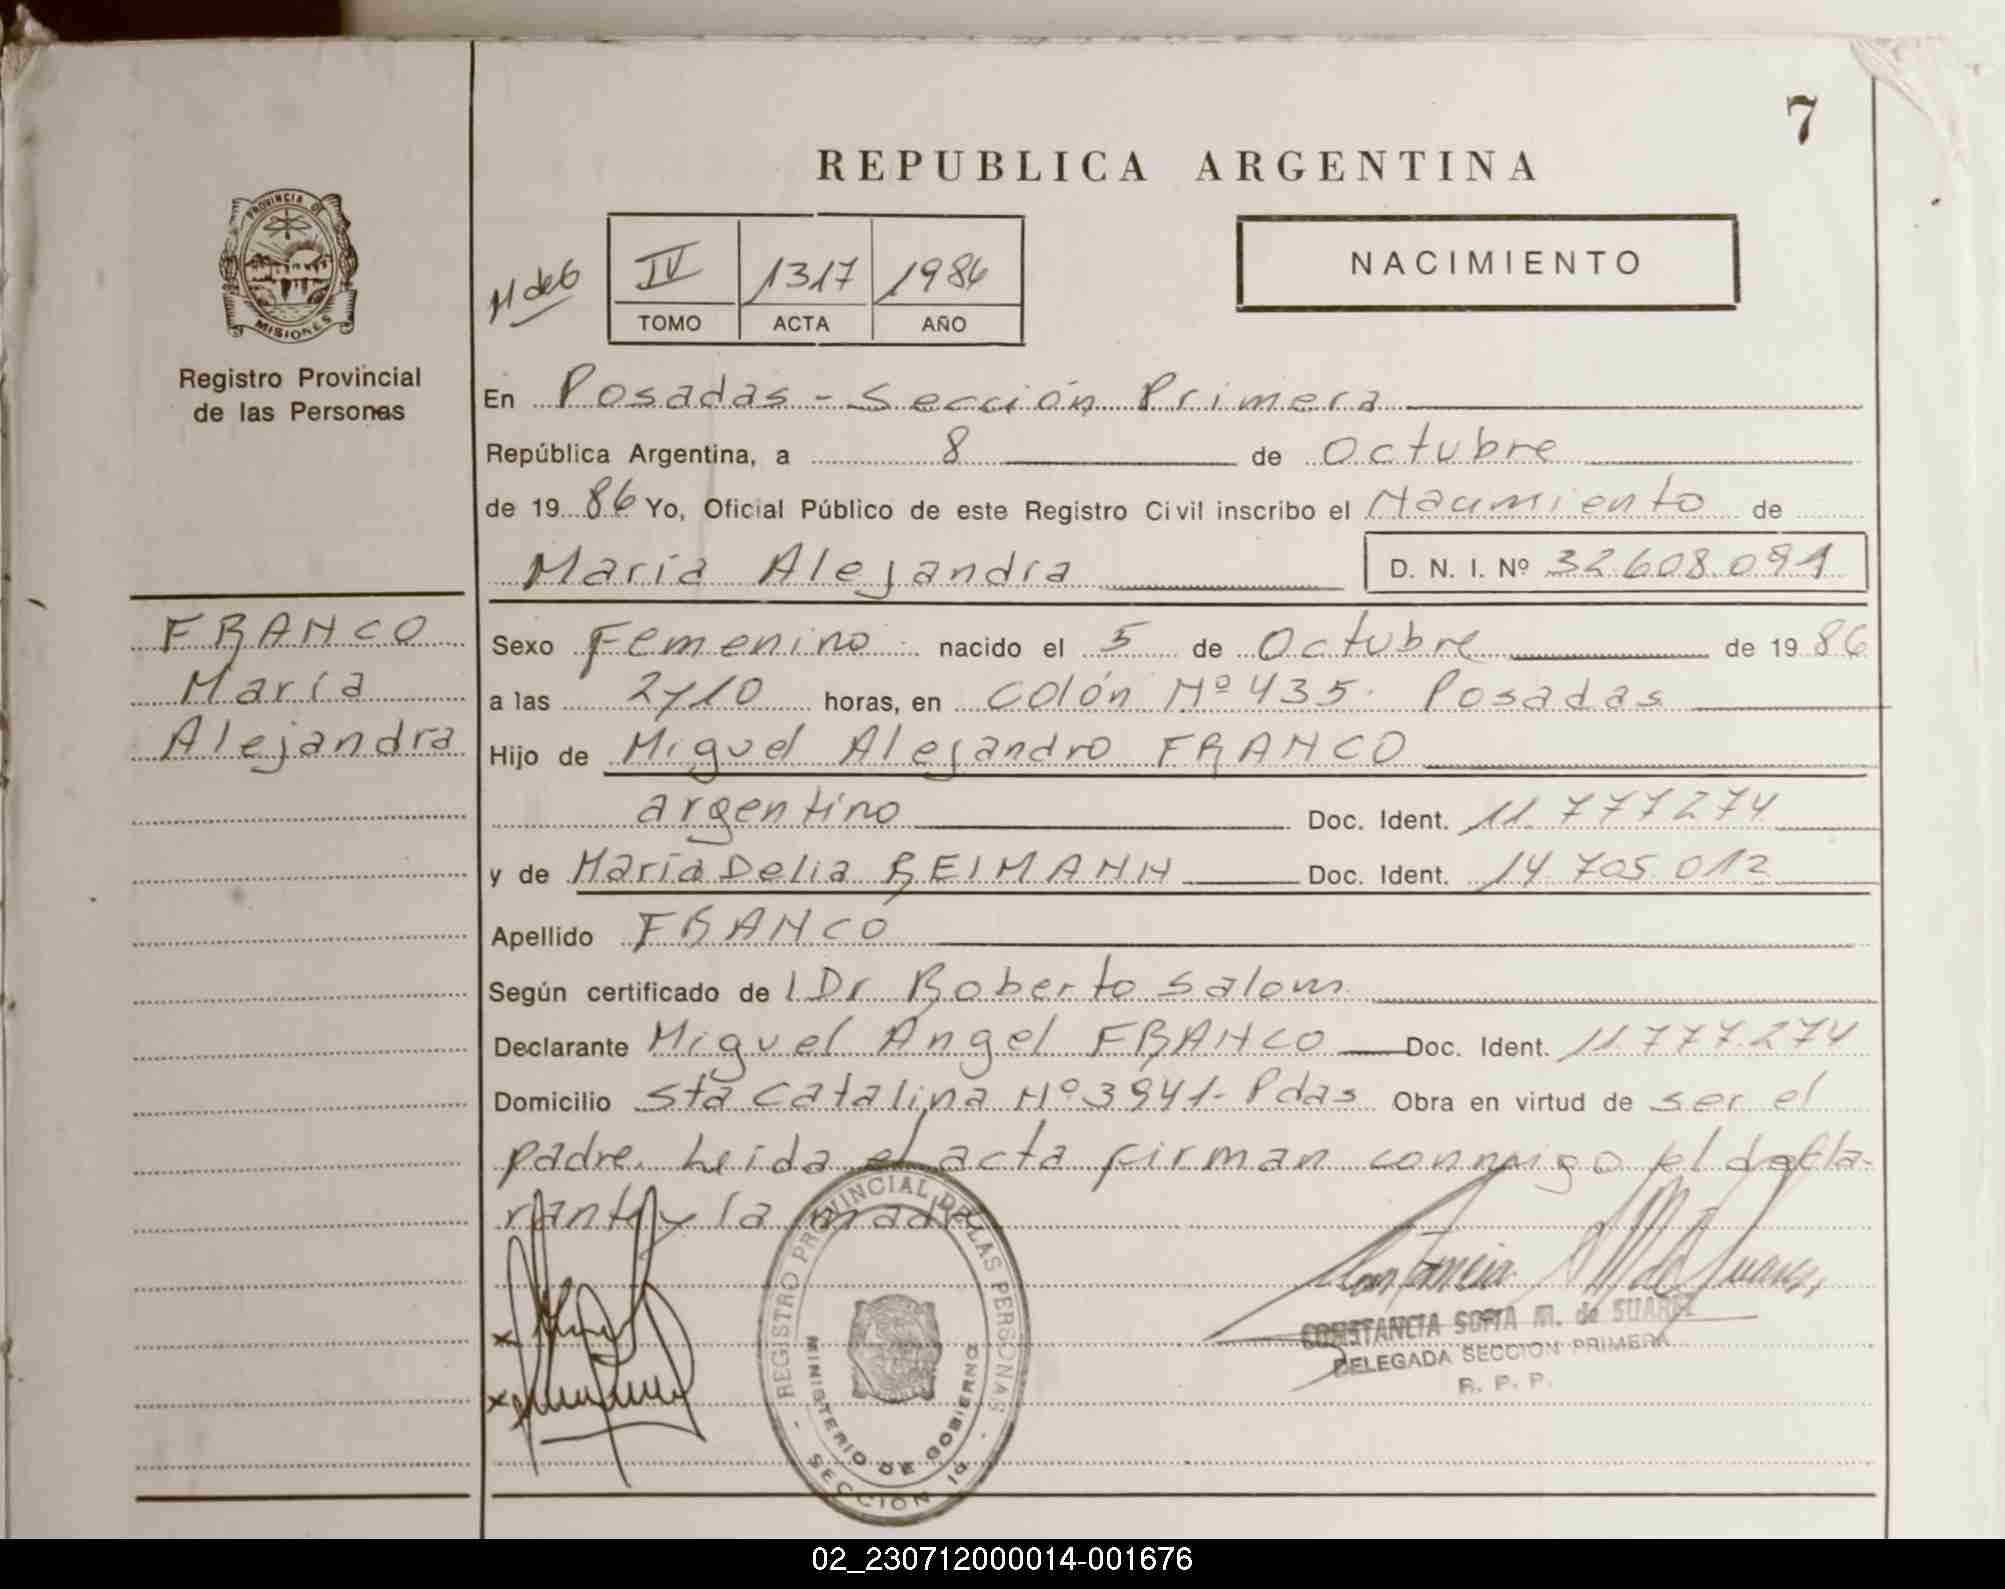 7
REPUBLICA ARGENTINA
PROVINCIA DE
MISIONES
Registro Provincial
de las Personas
IV 1317 1986
TOMO ACTA AÑO
NACIMIENTO
En Posadas - Sección Primera
República Argentina, a 8 de Octubre
de 19 86 Yo, Oficial Público de este Registro Civil inscribo el Nacimiento de
María Alejandra D. N. I. Nº 32.608.091
FRANCO
María
Alejandra
Sexo Femenino nacido el 5 de Octubre de 19 86
a las 2y10 horas, en Colón Nº 435. Posadas
Hijo de Miguel Alejandro FRANCO
argentino Doc. Ident. 11.777274
y de María Delia REIMANN Doc. Ident. 14.705.012
Apellido FRANCO
Según certificado de l Dr Roberto Salom
Declarante Miguel Angel FRANCO Doc. Ident. 11.777.274
Domicilio Sta Catalina Nº 3941- Pdas Obra en virtud de ser el
padre. Leida el acta firman conmigo el decla-
rante y la madre
REGISTRO PROVINCIAL DE LAS PERSONAS
MINISTERIO DE GOBIERNO
SECCION 1a
CONSTANCIA SOFIA M. de SUAREZ
DELEGADA SECCION PRIMERA
R. P. P.
02_230712000014-001676